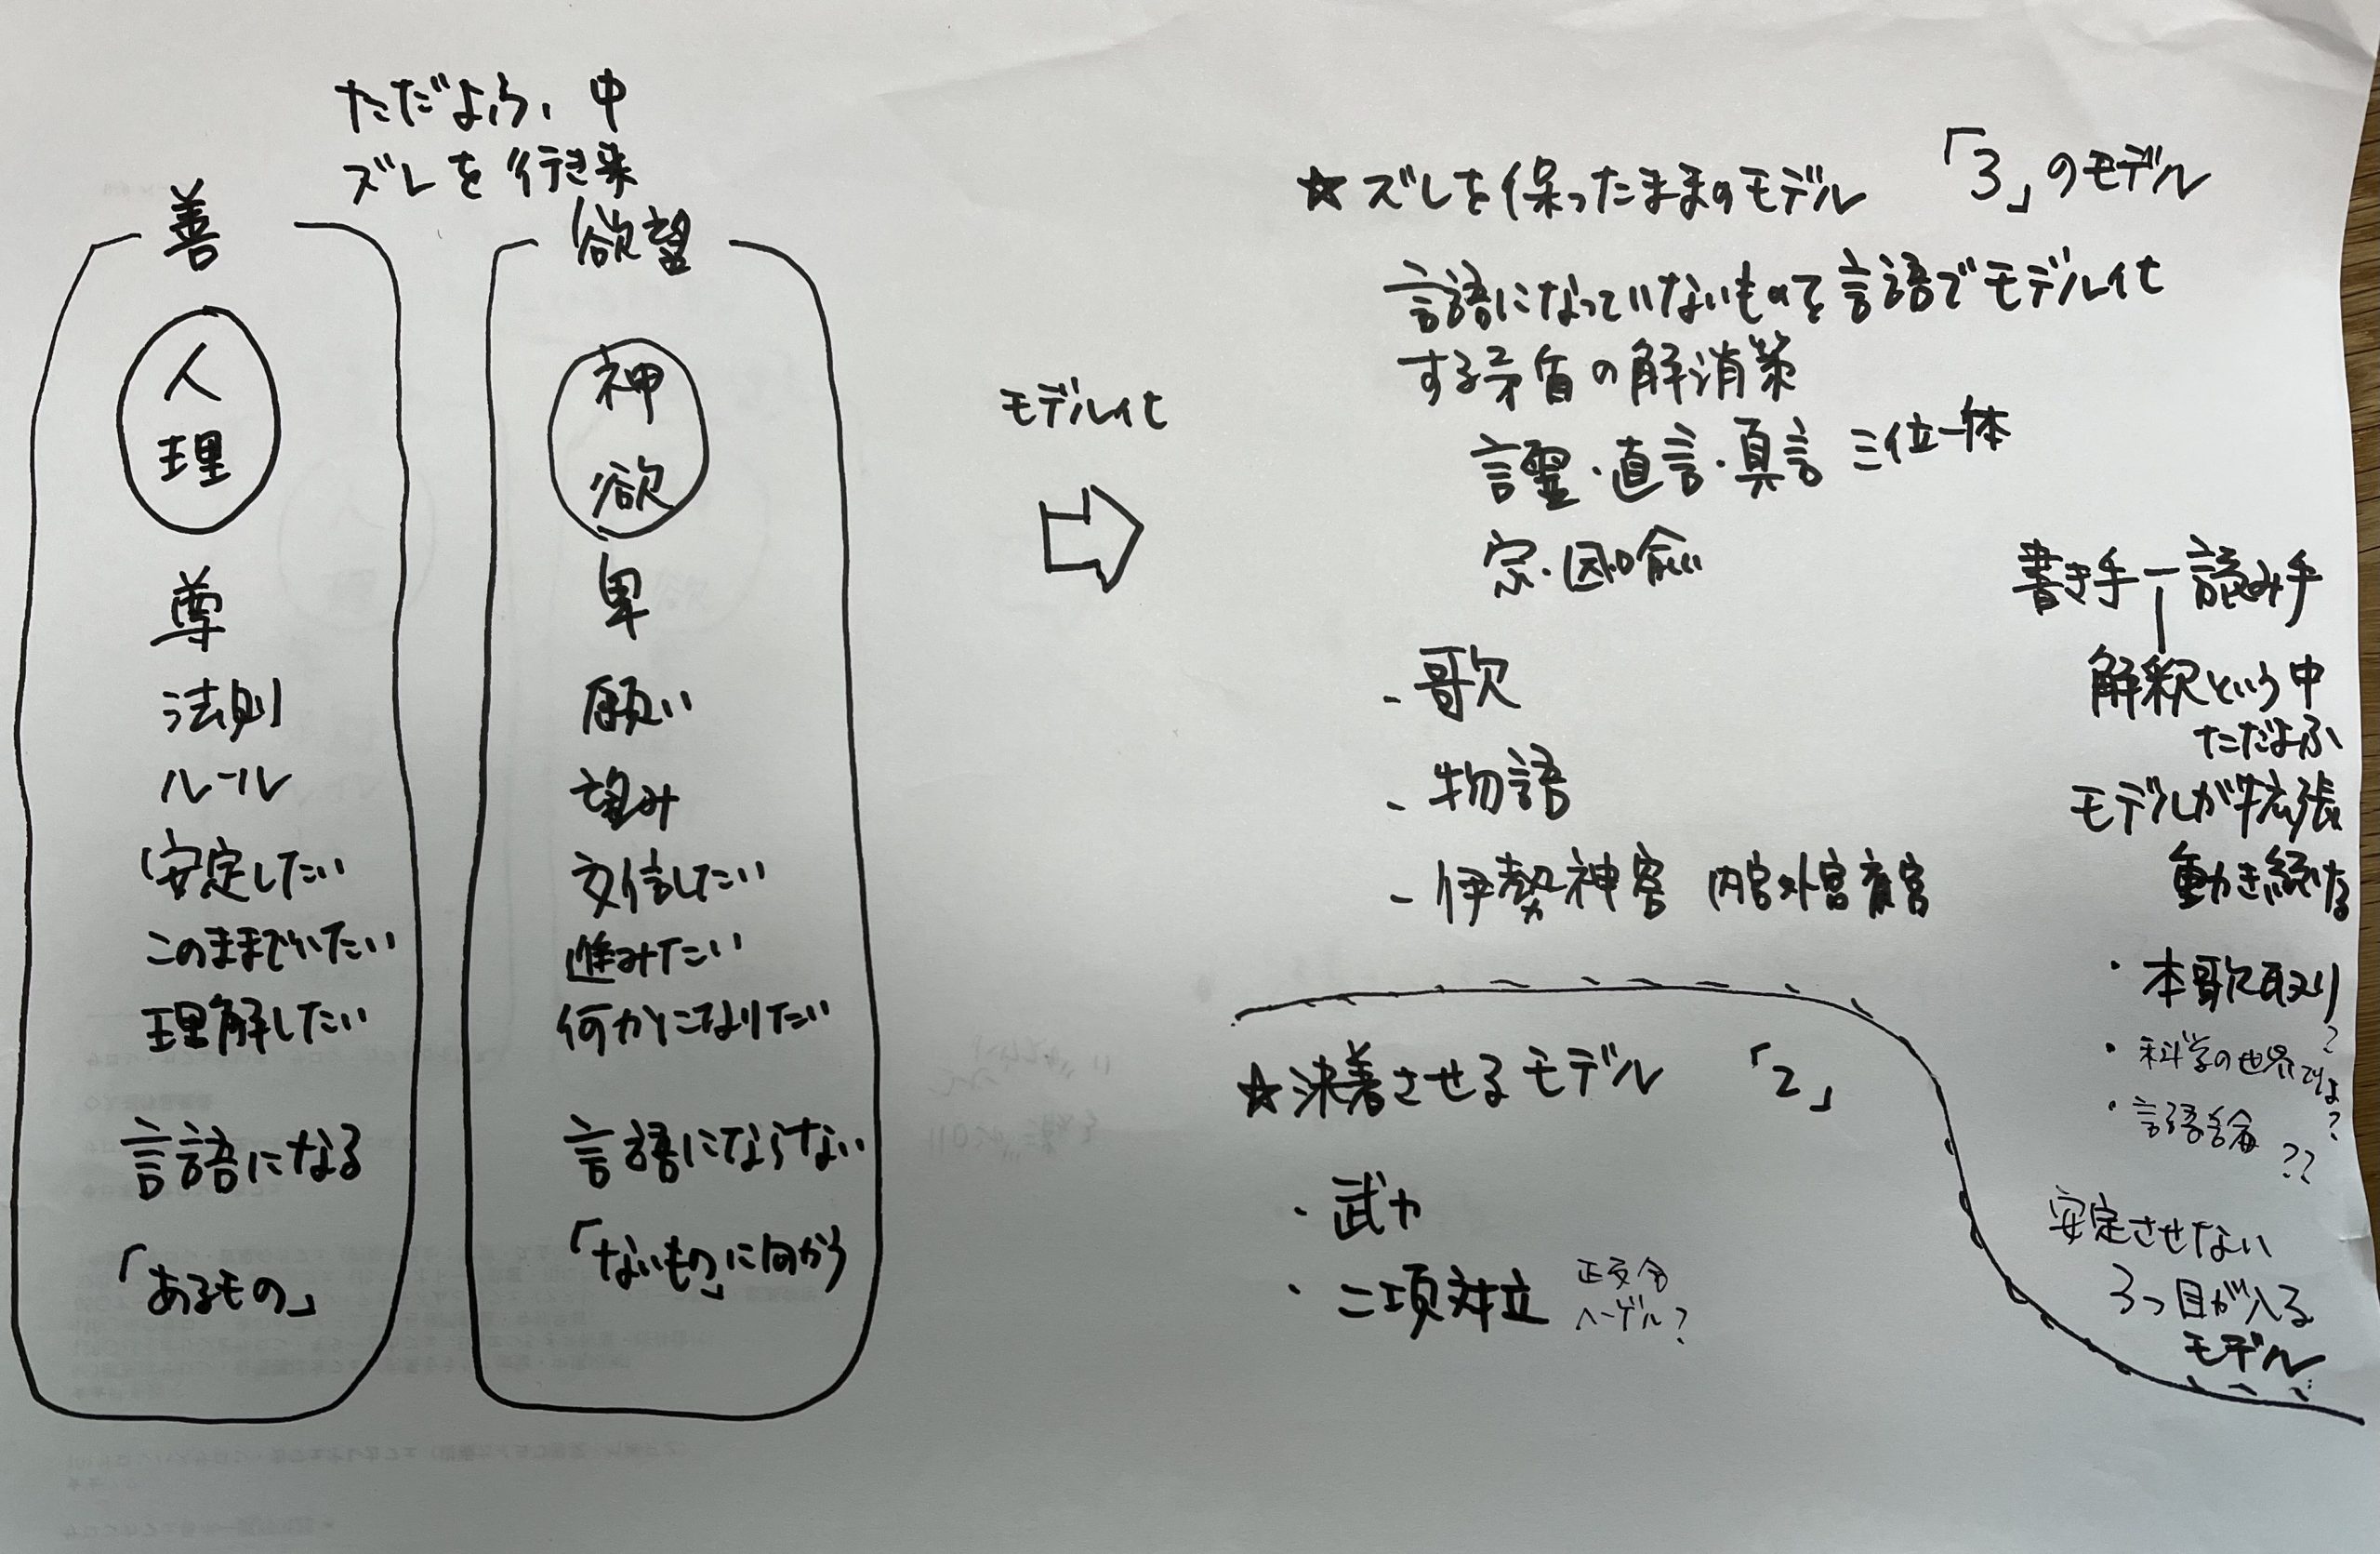 ただよふ、中
ズレを行き来
善
人
理
尊
法則
ルール
安定したい
このままでいたい
理解したい
言語になる
「あるもの」
欲望
神
欲
卑
願い
望み
交信したい
進みたい
何かになりたい
言語にならない
「ないもの」に向かう
モデル化
☆ズレを保ったままのモデル 「3」のモデル
言語になっていないものを言語でモデル化
する矛盾の解消策
言霊・直言・真言 三位一体
宗・因・喩
- 歌
- 物語
- 伊勢神宮 内宮外宮斎宮
書き手ー読み手
解釈という中
ただよふ
モデルが拡張
動き続ける
・本歌取り
・科学の世界では?
・言語論??
安定させない
3つ目が入る
モデル
☆決着させるモデル 「2」
・武力
・二項対立 正反合
ヘーゲル?